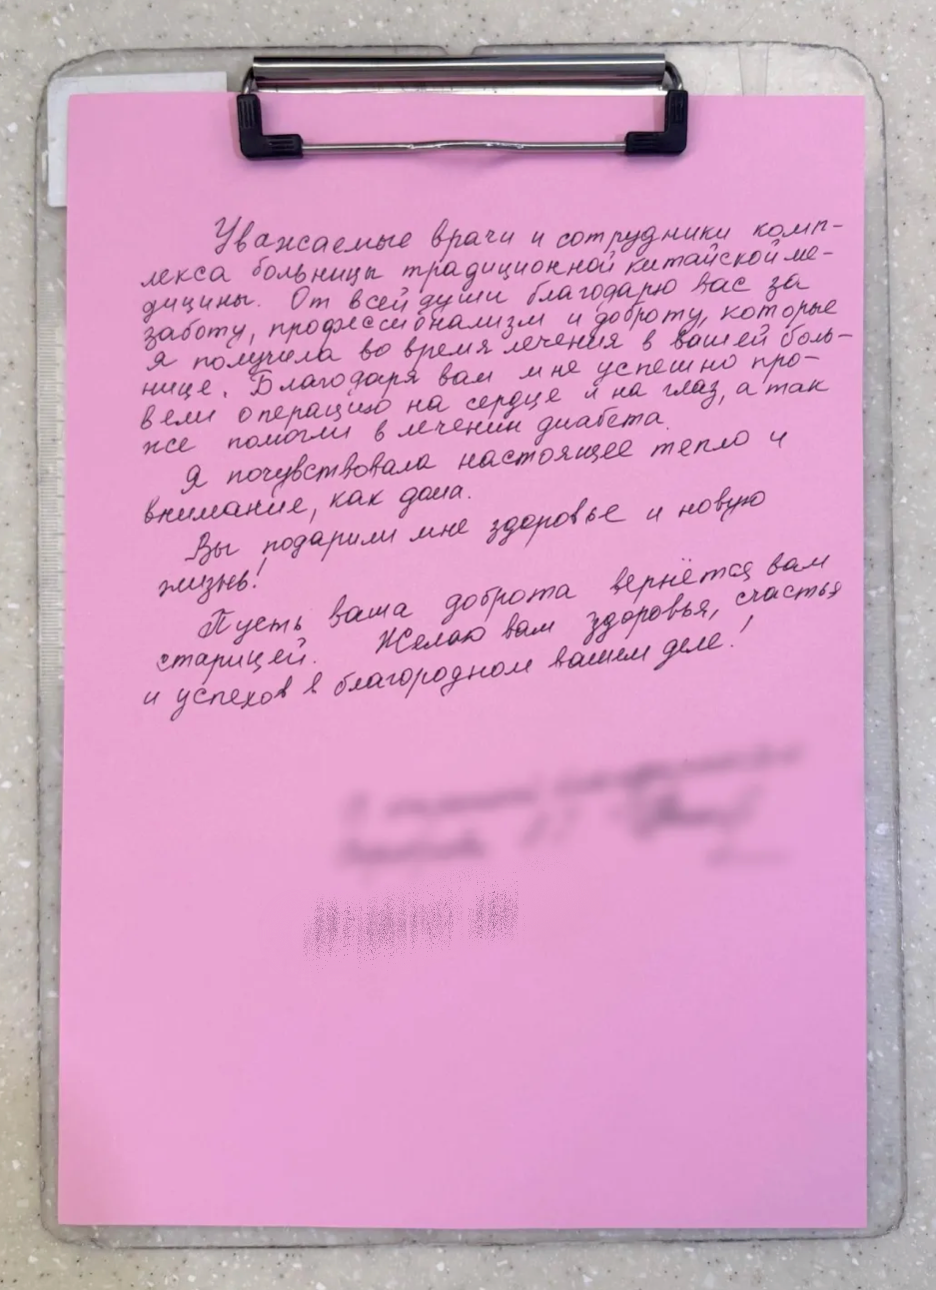 Уважаемые врачи и сотрудники комп-
лекса больницы традиционной китайской ме-
дицины. От всей души благодарю вас за
заботу, профессионализм и доброту, которые
я получила во время лечения в вашей боль-
нице. Благодаря вам мне успешно про-
вели операцию на сердце и на глаз, а так
же помогли в лечении диабета.
Я почувствовала настоящее тепло и
внимание, как дома.
Вы подарили мне здоровье и новую
жизнь!
Пусть ваша доброта вернётся вам
старицей. Желаю вам здоровья, счастья
и успехов в благородном вашем деле!